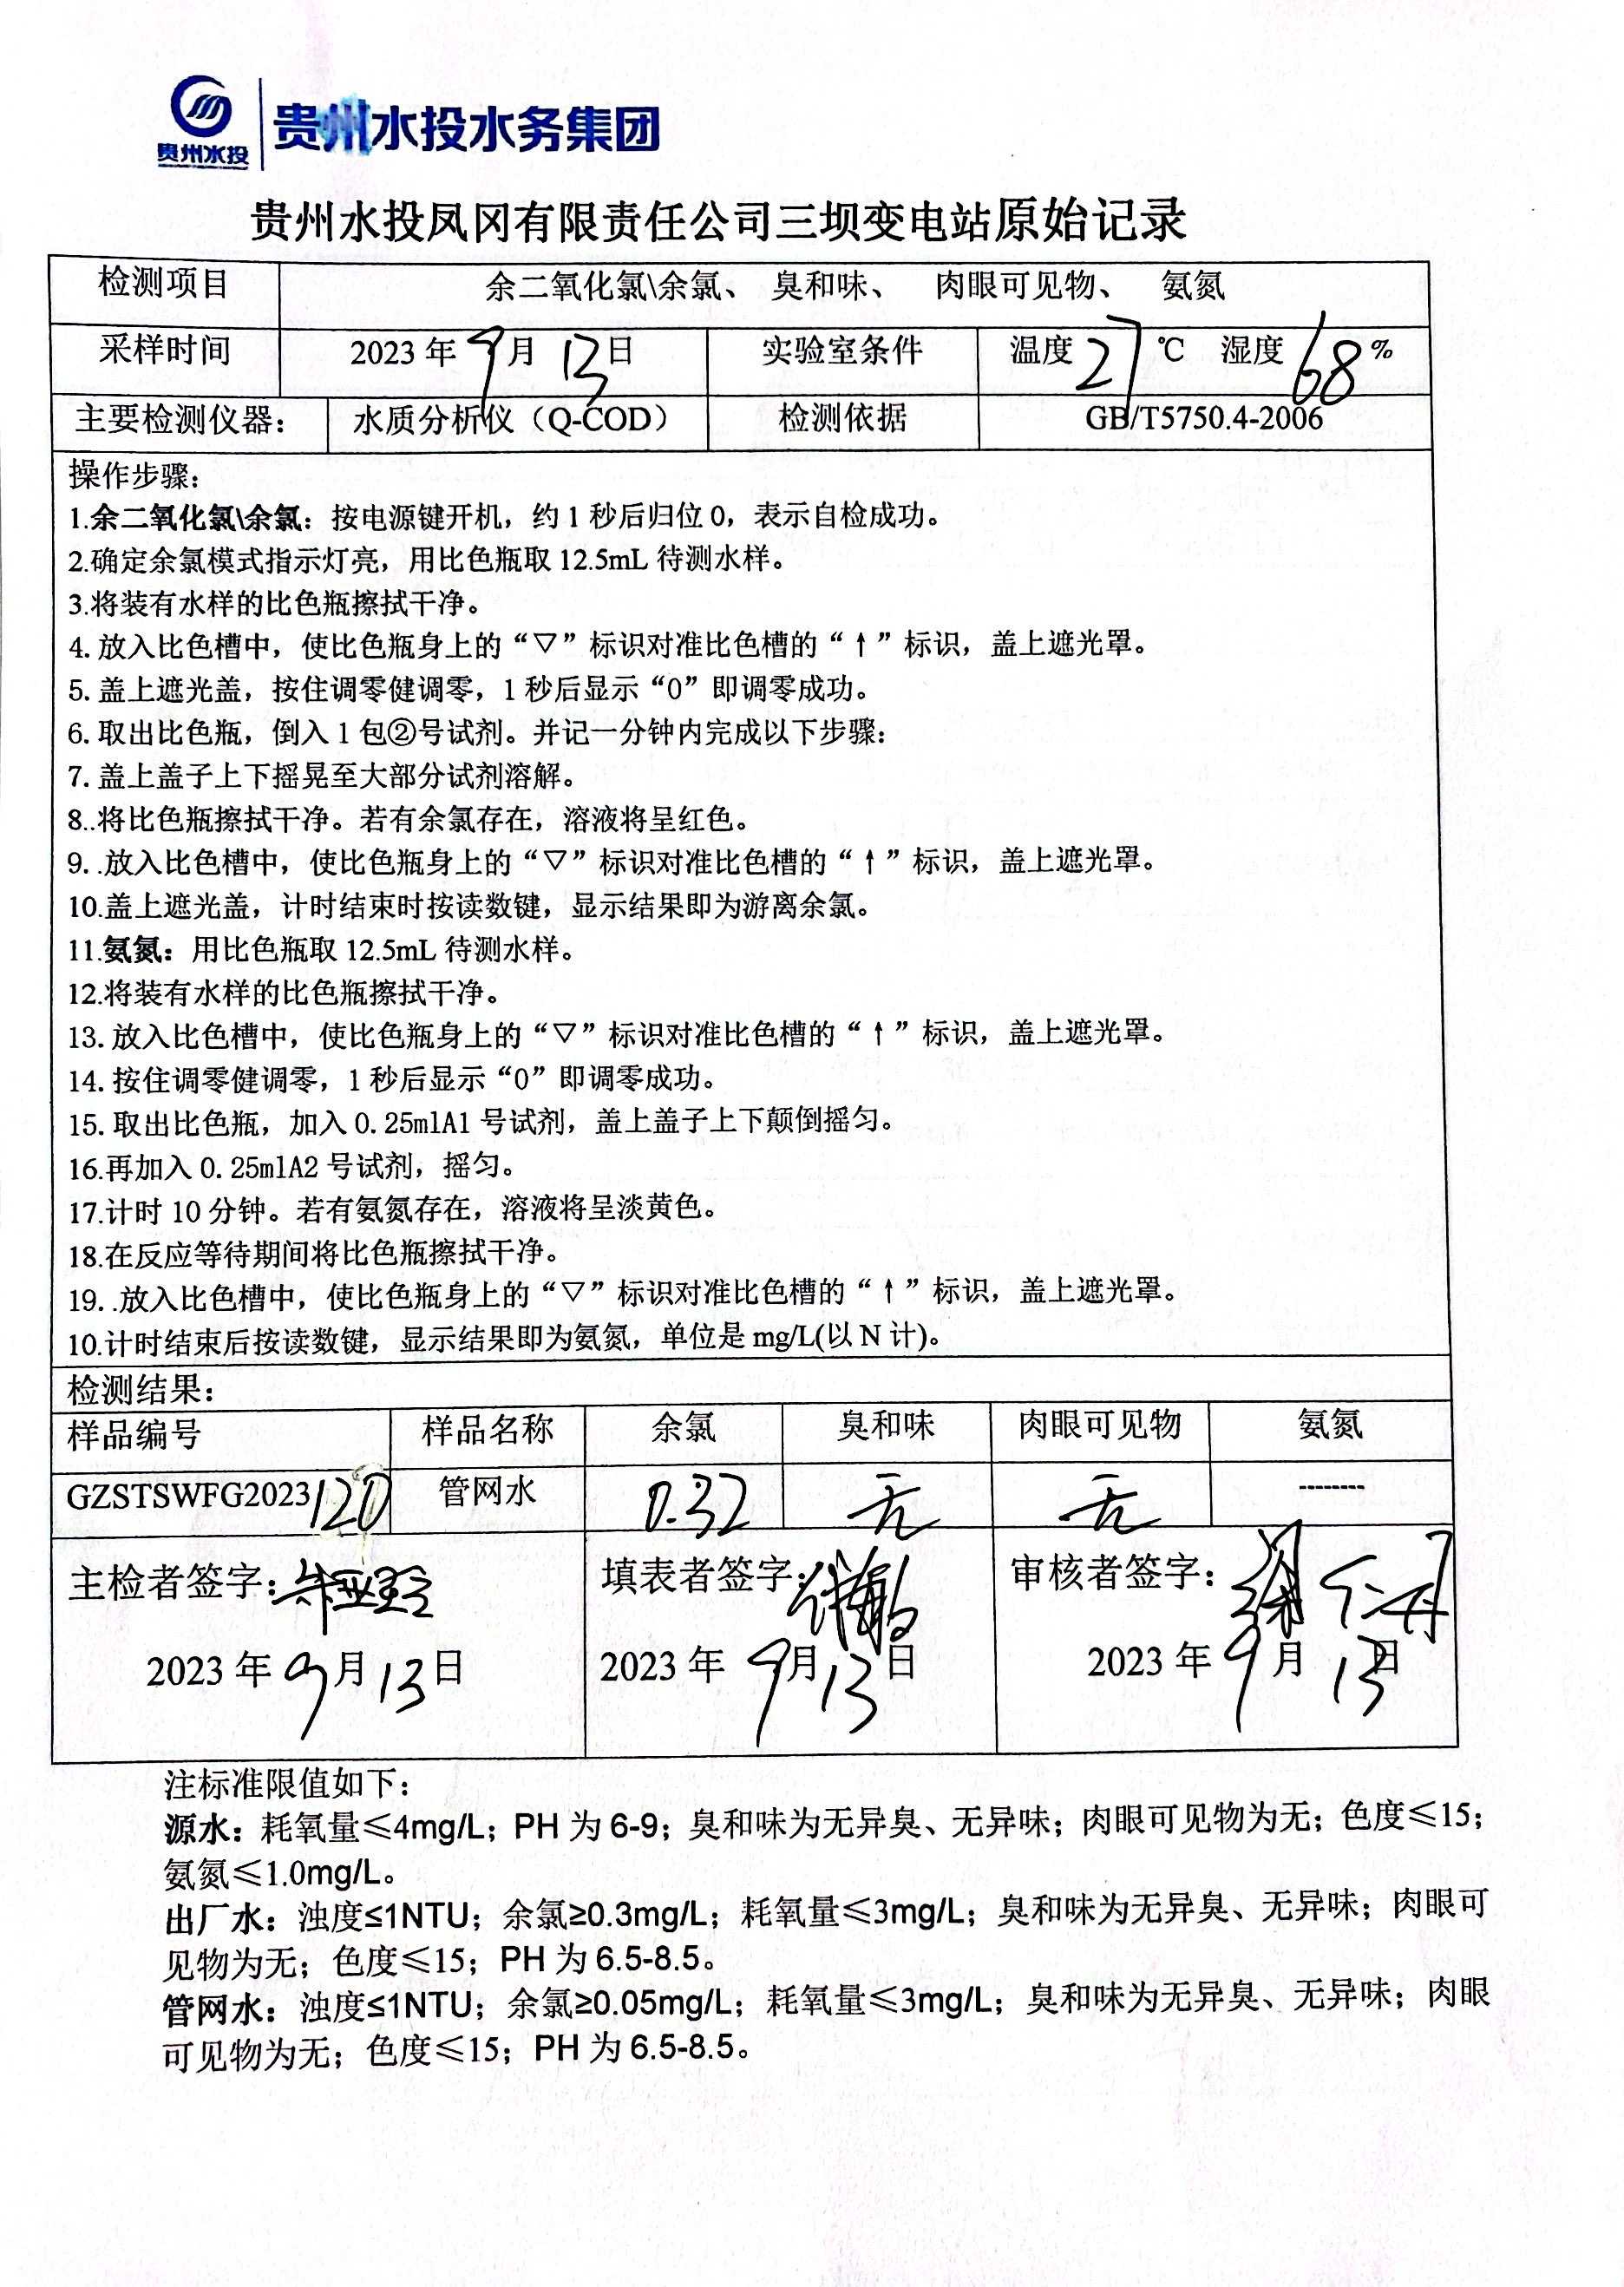 贵州水投
贵州水投水务集团
贵州水投凤冈有限责任公司三坝变电站原始记录
检测项目 余二氧化氯\余氯、 臭和味、 肉眼可见物、 氨氮
采样时间 2023 年 9 月 13 日 实验室条件 温度 27 ℃ 湿度 68 %
主要检测仪器： 水质分析仪（Q-COD） 检测依据 GB/T5750.4-2006
操作步骤：
1.余二氧化氯\余氯：按电源键开机，约 1 秒后归位 0，表示自检成功。
2.确定余氯模式指示灯亮，用比色瓶取 12.5mL 待测水样。
3.将装有水样的比色瓶擦拭干净。
4. 放入比色槽中，使比色瓶身上的“▽”标识对准比色槽的“↑”标识，盖上遮光罩。
5. 盖上遮光盖，按住调零健调零，1 秒后显示“0”即调零成功。
6. 取出比色瓶，倒入 1 包②号试剂。并记一分钟内完成以下步骤：
7. 盖上盖子上下摇晃至大部分试剂溶解。
8..将比色瓶擦拭干净。若有余氯存在，溶液将呈红色。
9. .放入比色槽中，使比色瓶身上的“▽”标识对准比色槽的“↑”标识，盖上遮光罩。
10.盖上遮光盖，计时结束时按读数键，显示结果即为游离余氯。
11.氨氮：用比色瓶取 12.5mL 待测水样。
12.将装有水样的比色瓶擦拭干净。
13. 放入比色槽中，使比色瓶身上的“▽”标识对准比色槽的“↑”标识，盖上遮光罩。
14. 按住调零健调零，1 秒后显示“0”即调零成功。
15. 取出比色瓶，加入 0.25mlA1 号试剂，盖上盖子上下颠倒摇匀。
16.再加入 0.25mlA2 号试剂，摇匀。
17.计时 10 分钟。若有氨氮存在，溶液将呈淡黄色。
18.在反应等待期间将比色瓶擦拭干净。
19. .放入比色槽中，使比色瓶身上的“▽”标识对准比色槽的“↑”标识，盖上遮光罩。
10.计时结束后按读数键，显示结果即为氨氮，单位是 mg/L(以 N 计)。
检测结果：
样品编号 样品名称 余氯 臭和味 肉眼可见物 氨氮
GZSTSWFG2023120 管网水 0.32 无 无 --------
主检者签字： 填表者签字： 审核者签字：
2023 年 9 月 13 日 2023 年 9 月 13 日 2023 年 9 月 13 日
注标准限值如下：
源水：耗氧量≤4mg/L；PH 为 6-9；臭和味为无异臭、无异味；肉眼可见物为无；色度≤15；
氨氮≤1.0mg/L。
出厂水：浊度≤1NTU；余氯≥0.3mg/L；耗氧量≤3mg/L；臭和味为无异臭、无异味；肉眼可
见物为无；色度≤15；PH 为 6.5-8.5。
管网水：浊度≤1NTU；余氯≥0.05mg/L；耗氧量≤3mg/L；臭和味为无异臭、无异味；肉眼
可见物为无；色度≤15；PH 为 6.5-8.5。